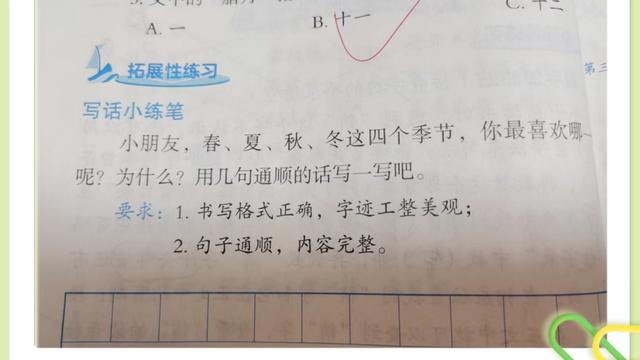 文中的
A. 一 B. 十一 C. 十二
拓展性练习
第三
写话小练笔
小朋友，春、夏、秋、冬这四个季节，你最喜欢哪
呢？为什么？用几句通顺的话写一写吧。
要求：1. 书写格式正确，字迹工整美观；
2. 句子通顺，内容完整。